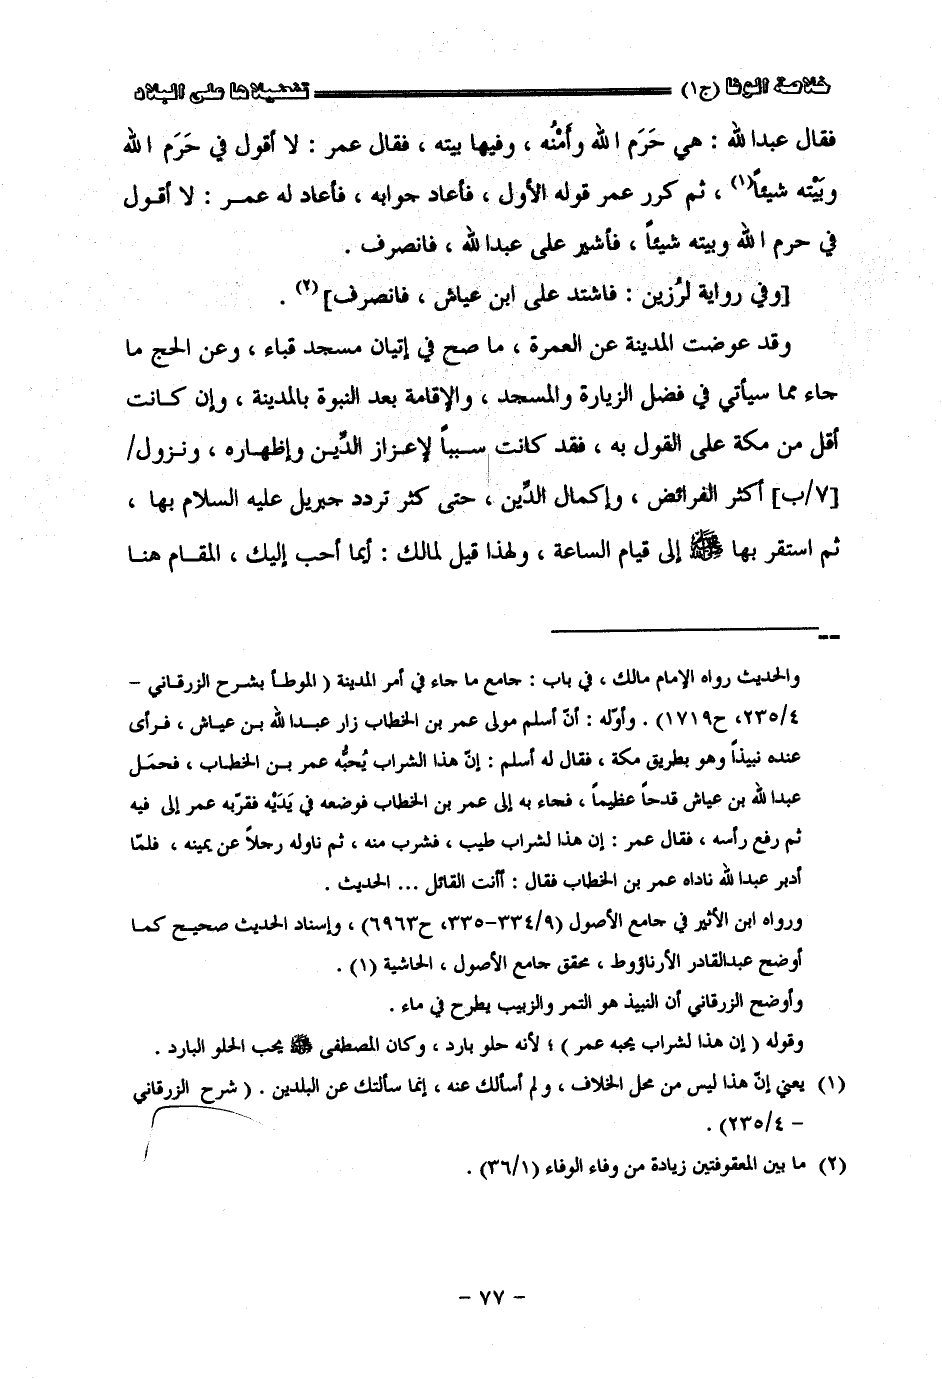 خلاصة الوفا (ج١) تفضيلاها على البلاد
فقال عبدالله : هي حَرَم الله وأَمْنُه ، وفيها بيته ، فقال عمر : لا أقول في حَرَم الله
وبَيْته شيئاً(١) ، ثم كرر عمر قوله الأول ، فأعاد جوابه ، فأعاد له عمر : لا أقول
في حرم الله وبيته شيئاً ، فأشير على عبدالله ، فانصرف .
[وفي رواية لرُزين : فاشتد على ابن عياش ، فانصرف](٢) .
وقد عوضت المدينة عن العمرة ، ما صح في إتيان مسجد قباء ، وعن الحج ما
جاء مما سيأتي في فضل الزيارة والمسجد ، والإقامة بعد النبوة بالمدينة ، وإن كانت
أقل من مكة على القول به ، فقد كانت سبباً لإعزاز الدِّين وإظهاره ، ونزول/
[٧/ب] أكثر الفرائض ، وإكمال الدِّين ، حتى كثر تردد جبريل عليه السلام بها ،
ثم استقر بها ﷺ إلى قيام الساعة ، ولهذا قيل لمالك : أيما أحب إليك ، المقام هنا
والحديث رواه الإمام مالك ، في باب : جامع ما جاء في أمر المدينة ( الموطأ بشرح الزرقاني –
٢٣٥/٤، ح١٧١٩) . وأوّله : أنّ أسلم مولى عمر بن الخطاب زار عبدالله بن عياش ، فرأى
عنده نبيذاً وهو بطريق مكة ، فقال له أسلم : إنّ هذا الشراب يُحبُّه عمر بن الخطاب ، فحمَل
عبدالله بن عياش قدحاً عظيماً ، فجاء به إلى عمر بن الخطاب فوضعه في يَدَيْه فقرّبه عمر إلى فيه
ثم رفع رأسه ، فقال عمر : إن هذا لشراب طيب ، فشرب منه ، ثم ناوله رجلاً عن يمينه ، فلمّا
أدبر عبدالله ناداه عمر بن الخطاب فقال : أأنت القائل ... الحديث .
ورواه ابن الأثير في جامع الأصول (٣٣٤/٩-٣٣٥، ح٦٩٦٣) ، وإسناد الحديث صحيح كما
أوضح عبدالقادر الأرناؤوط ، محقق جامع الأصول ، الحاشية (١) .
وأوضح الزرقاني أن النبيذ هو التمر والزبيب يطرح في ماء .
وقوله ( إن هذا لشراب يحبه عمر ) ؛ لأنه حلو بارد ، وكان المصطفى ﷺ يحب الحلو البارد .
(١) يعني إنّ هذا ليس من محل الخلاف ، ولم أسألك عنه ، إنما سألتك عن البلدين . ( شرح الزرقاني
– ٢٣٥/٤) .
(٢) ما بين المعقوفتين زيادة من وفاء الوفاء (٣٦/١) .
– ٧٧ –